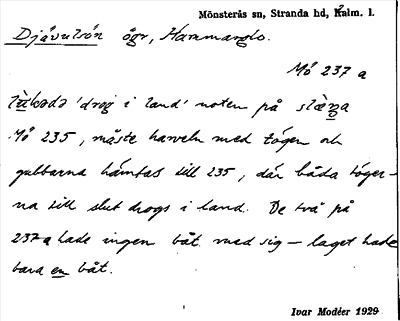 Mönsterås sn, Stranda hd, Kalm. l.
Djävulsön ögr, Hammarglo.
Mö 237 a
'drog i land' noten på
Mö 235, måste harveln med tögen och
gubbarna hämtas till 235, där båda töger-
na till slut drogs i land. De två på
237a hade ingen båt med sig – laget hade
bara en båt.
Ivar Modéer 1929